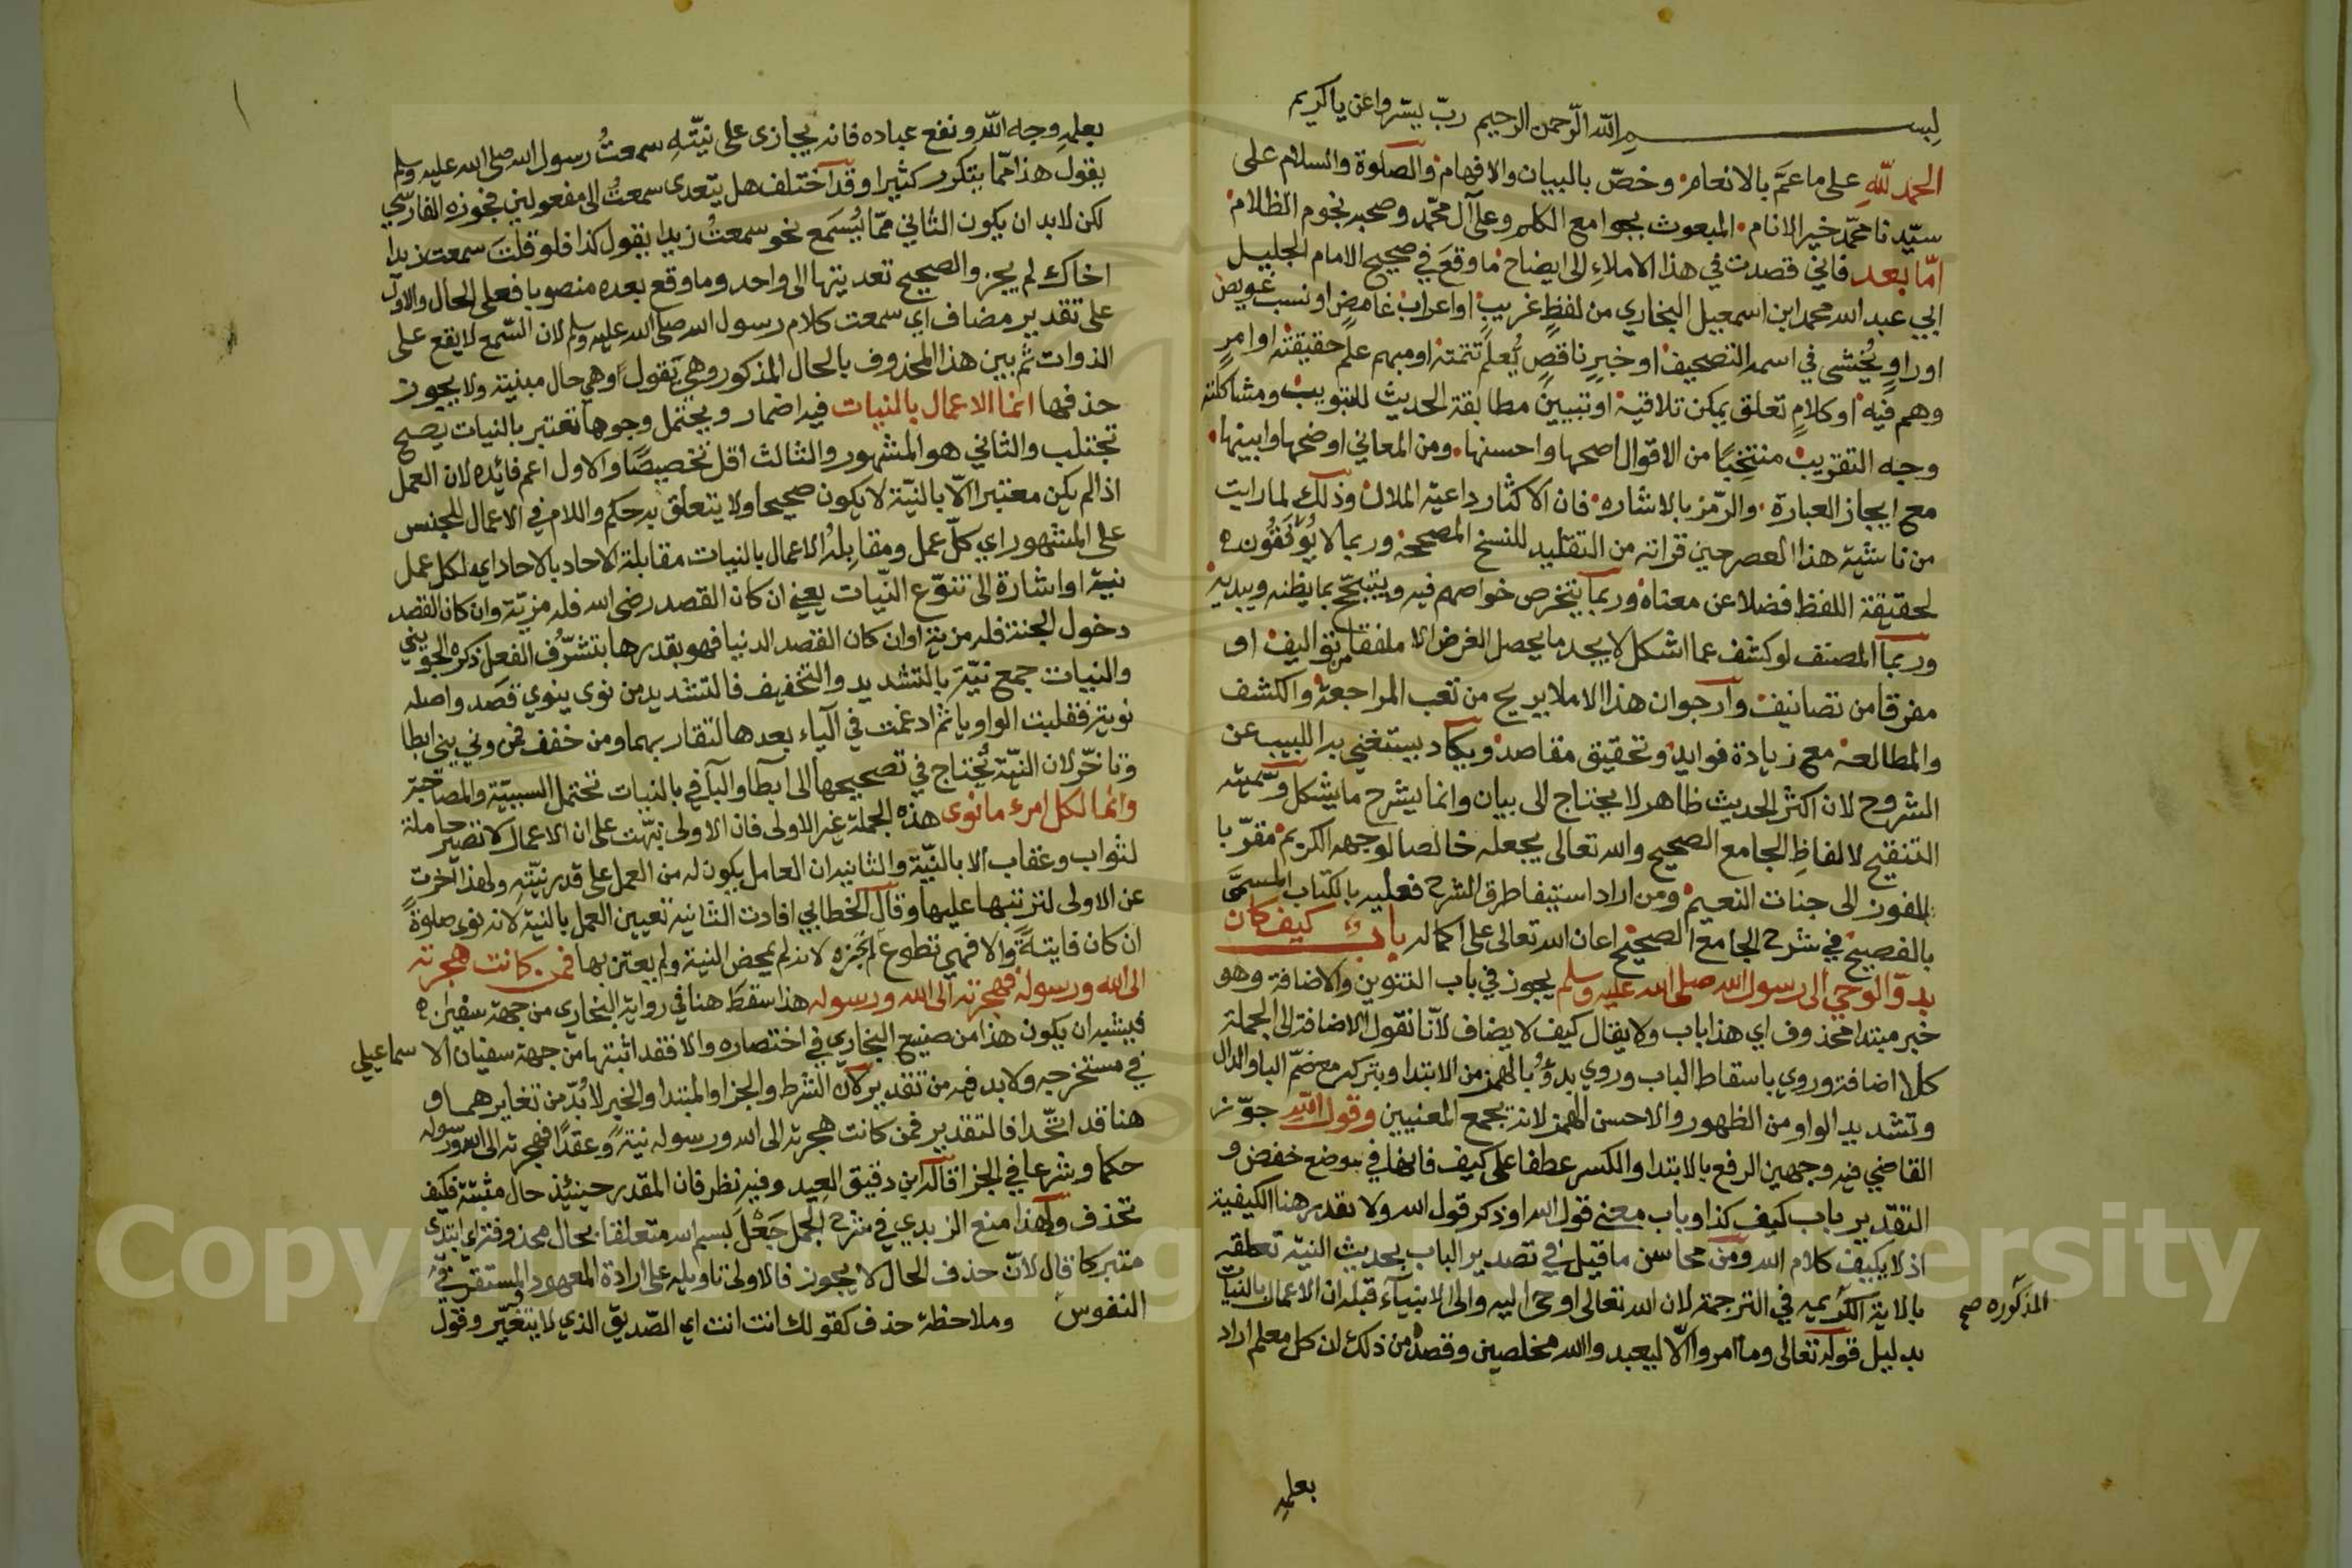 بسم الله الرحمن الرحيم ربّ يسّر واعن يا كريم
الحمد لله على ما عمّ بالانعام وخصّ بالبيان والافهام والصلوة والسلام على
سيّدنا محمّد خير الانام المبعوث بجوامع الكلم وعلى آل محمّد وصحبه نجوم الظلام
امّا بعد فاني قصدت في هذا الاملاءِ الى ايضاح ما وقع في صحيح الامام الجليل
ابي عبد الله محمد ابن اسمعيل البخاري من لفظٍ غريبٍ او اعراب غامضٍ او نسب عويص
او راوٍ يُخشى في اسمه التصحيف او خبرٍ ناقصٍ يُعلم تتمته او مبهم علم حقيقته او امرٍ
وهم فيه او كلامٍ تعلق يمكن تلاقيه او تبيين مطابقة الحديث للتبويب ومشاكلته
وجه التقريب منتخِبًا من الاقوال اصحها واحسنها ومن المعاني اوضحها وابينها
مع ايجاز العبارة والرّمز بالاشاره فان الاكثار داعية الملال وذلك لما رايت
من ناشئية هذا العصر حين قراته من التقليد للنسخ المصححه وربما لا يُوَفّقُون ه
لحقيقة اللفظ فضلا عن معناه وربما يتخرص خواصهم فيه ويتبجّح بما يظنه ويبديه
وربما المصنف لو كشف عما اشكل لا يجد ما يحصل الغرض الا ملفقا من تواليف او
مفرقا من تصانيف وارجوا ان هذا الاملا يريح من تعب المراجعة والكشف
والمطالعه مع زيادة فوايد وتحقيق مقاصد ويكاد يستغني به اللبيب عن
الشروح لان اكثر الحديث ظاهر لا يحتاج الى بيان وانما يشرح ما يشكل وسمّيته
التنقيح لالفاظِ الجامع الصحيح والله تعالى يجعله خالصا لوجهه الكريم مقرّبا
للفوز الى جنات النعيم ومن اراد استيفا طرق الشرح فعليه بالكتاب المسمّى
بالفصيح في شرح الجامع الصحيح اعان الله تعالى على اكماله باب كيف كان
بدؤ الوحي الى رسول الله صلى الله عليه وسلم يجوز في باب التنوين والاضافة وهو
خبر مبتدا محذوف اي هذا باب ولا يقال كيف لا يضاف لانّا نقول الاضافة الى الجملة
كلا اضافة وروي باسقاط الباب وروي بدؤُ بالهمز من الابتدا وبتركه مع ضمّ البا والدال
وتشديد الواو من الظهور والاحسن الهمز لانه يجمع المعنيين وقول الله جوّز
القاضي فيه وجهين الرفع بالابتدا والكسر عطفا على كيف فانها في موضع خفض و
التقدير باب كيف كذا وباب معنى قول الله او ذكر قول الله ولا يقدر هنا الكيفية
اذ لا يكيف كلام الله ومن محاسن ما قيل في تصدير الباب بحديث النية تعلقه
بالاية الكريمه في الترجمة لان الله تعالى اوحى اليه والى الانبيآء قبله ان الاعمال بالنيات
المذكوره صح
بدليل قوله تعالى وما امروا الّا ليعبدوا الله مخلصين وقصده من ذلك ان كل معلم اراد
بعلمِه
بعلمِه وجه الله ونفع عباده فانه يجازى على نيّته سمعتُ رسول الله صلى الله عليه وسلم
يقول هذا ممّا يتكرر كثيرا وقد اختلف هل يتعدى سمعتُ الى مفعولين فجوزه الفارسي
لكن لابد ان يكون الثاني ممّا يُسمع نحو سمعتُ زيدا يقول كذا فلو قلتَ سمعت زيدا
اخاك لم يجز والصحيح تعديتها الى واحد وما وقع بعده منصوبا فعلى الحال والاول
على تقدير مضاف اي سمعت كلام رسول الله صلى الله عليه وسلم لان السّمع لا يقع على
الذوات ثم بين هذا المحذوف بالحال المذكور وهي يقول وهي حال مبنية ولا يجوز
حذفها انما الاعمال بالنيات فيه اضمار ويحتمل وجوها تعتبر بالنيات يصح
تجتلب والثاني هو المشهور والثالث اقل تخصيصًا والاول اعم فائده لان العمل
اذا لم يكن معتبرا الّا بالنيّة لا يكون صحيحا ولا يتعلق به حكم واللام في الاعمال للجنس
على المشهور اي كلّ عمل ومقابلة الاعمال بالنيات مقابلة الاحاد بالاحاد اي لكل عمل
نية او اشارة الى تنوّع النيّات يعني ان كان القصد رضى الله فله مزيّة وان كان القصد
دخول الجنة فله مزية او ان كان القصد الدنيا فهو بقدرها بتشرّف الفعل ذكره الجويني
والنيات جمع نيّة بالتشديد والتخفيف فالتشديد من نوى ينوي قصد واصله
نوية فقلبت الواو يا ثم ادغمت في الياء بعدها لتقاربهما ومن خفف فمن ونى يني ابطا
وتاخّر لان النيّة تُحتاج في تصحيحها الى ابطا والبآ في بالنيات تحتمل السببيّة والمصاحبة
وانما لكل امرء ما نوى هذه الجملة غير الاولى فان الاولى نبّهت على ان الاعمال لا تصير حاملة
لثواب وعقاب الا بالنيّة والثانيه ان العامل يكون له من العمل على قدر نيّتهِ ولهذا اخّرت
عن الاولى لترتبها عليها وقال الخطابي افادت الثانية تعيين العمل بالنية لانه نوى صلوةً
ان كان فايتةً والا فهي تطوع لم يُجزه لانه لم يمحض النية ولم يعتن بها فمن كانت هجرته
الى الله ورسوله فهجرته الى الله ورسوله هذا سقط هنا في رواية البخاري من جهة سفين ه
فيشبه ان يكون هذا من صنيع البخاري في اختصاره والا فقد اثبتها من جهة سفيان الاسماعيلي
في مستخرجه ولابد فيه من تقدير لانّ الشرط والجزا والمبتدا والخبر لابُدّ من تغايرهما و
هنا قد اتّحدا فالتقدير فمن كانت هجرته الى الله ورسوله نيةً وعقدًا فهجرته الى الله ورسوله
حكما وشرعا في الجزا قاله ابن دقيق العيد وفيه نظر فان المقدر حينئذ حال مثبتة فكيف
تحذف ولهذا منع الزيدي في شرح الجمل جَعْلَ بسم الله متعلقا بحال محذوفة اي ابتدئ
متبركا قال لانّ حذف الحال لا يجوز فالاولى تاويله على ارادة المعهود المستقر في
النفوس وملاحظة حذف كقولك انت انت اي الصّديق الذي لا يتغيّر وقول